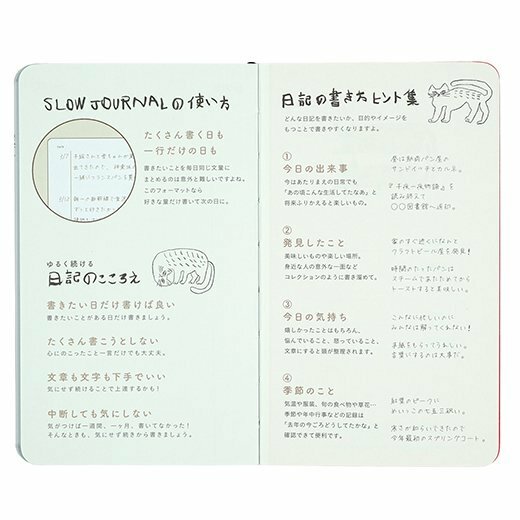 SLOW JOURNALの使い方
たくさん書く日も
一行だけの日も
書きたいことを毎日同じ文量に
まとめるのは意外と難しいですよね。
このフォーマットなら
好きな量だけ書いて次の日に。
ゆるく続ける
日記のこころえ
書きたい日だけ書けば良い
書きたいことがある日だけ書きましょう。
たくさん書こうとしない
心にのこったこと一言だけでも大丈夫。
文章も文字も下手でいい
気にせず続けることで上達するかも!
中断しても気にしない
気がつけば一週間、一ヶ月、書いてなかった!
そんなときも、気にせず続きから書きましょう。
日記の書き方ヒント集
どんな日記を書きたいか、目的やイメージを
もつことで書きやすくなりますよ。
①
今日の出来事
今はあたりまえの日常でも
「あの頃こんな生活してたなあ」と
将来ふりかえると楽しいもの。
昼は駅前パン屋の
サンドイッチとカルネ。
『千夜一夜物語』を
読み終えて
〇〇図書館へ返却。
②
発見したこと
美味しいものや楽しい場所。
身近な人の意外な一面など
コレクションのように書き溜めて。
家のすぐ近くになんと
クラフトビール屋を発見!
時間のたったパンは
スチームであたためてから
トーストすると美味しい。
③
今日の気持ち
嬉しかったことはもちろん、
悩んでいること、怒っていること、
文章にすると頭が整理されます。
こんなに忙しいのに
みんなは解ってくれない!
手紙をもらってうれしい。
言葉にするのは大事だ。
④
季節のこと
気温や服装、旬の食べ物や草花…
季節や年中行事などの記録は
「去年の今ごろどうしてたかな」と
確認できて便利です。
紅葉のピークに
めいっこの七五三祝い。
寒さが和らいできたので
今年最初のスプリングコート。